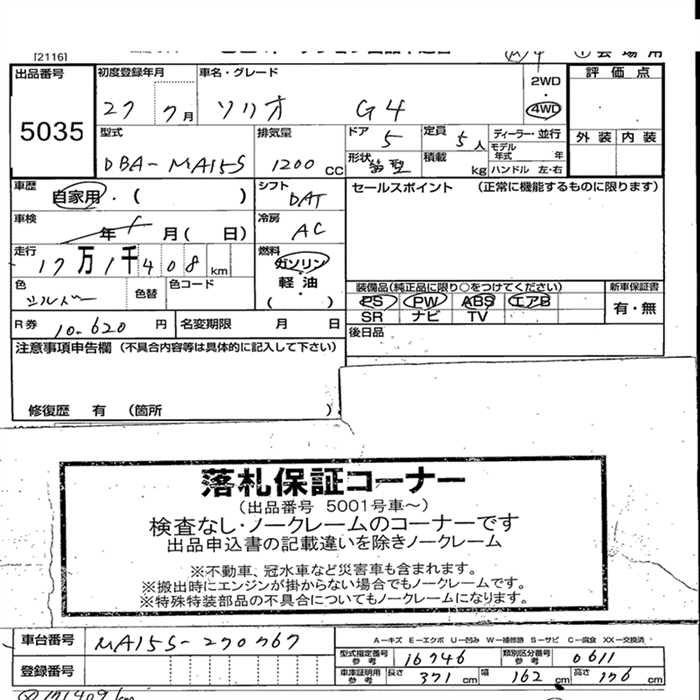 [2116]
会場用
出品番号 5035
初度登録年月 27 7月
車名・グレード ソリオ G4
2WD・4WD
評価点
外装 内装
型式 DBA-MA15S
排気量 1200 CC
ドア 5
定員 5人
形状 箱型
積載 kg
ディーラー・並行
モデル年式 年
ハンドル 左・右
車歴 自家用・( )
シフト DAT
セールスポイント (正常に機能するものに限ります)
車検 年 月( 日)
冷房 AC
走行 17万1千408km
燃料 ガソリン・軽油・( )
色 シルバー
色替
色コード
装備品(純正品に限り○をつけてください)
PS PW ABS エアB
SR ナビ TV
新車保証書 有・無
R券 10.620円
名変期限 月 日
後日品
注意事項申告欄 (不具合内容等は具体的に記入して下さい)
修復歴 有 (箇所 )
落札保証コーナー
(出品番号 5001号車~)
検査なし・ノークレームのコーナーです
出品申込書の記載違いを除きノークレーム
※不動車、冠水車など災害車も含まれます。
※搬出時にエンジンが掛からない場合でもノークレームです。
※特殊特装部品の不具合についてもノークレームになります。
車台番号 MA15S-270767
A-キズ E-エクボ U-凹み W-補修跡 S-サビ C-腐食 XX-交換済
型式指定番号 参考 16746
類別区分番号 参考 0611
登録番号
車庫証明用 参考 長さ 371cm 幅 162cm 高さ 176cm